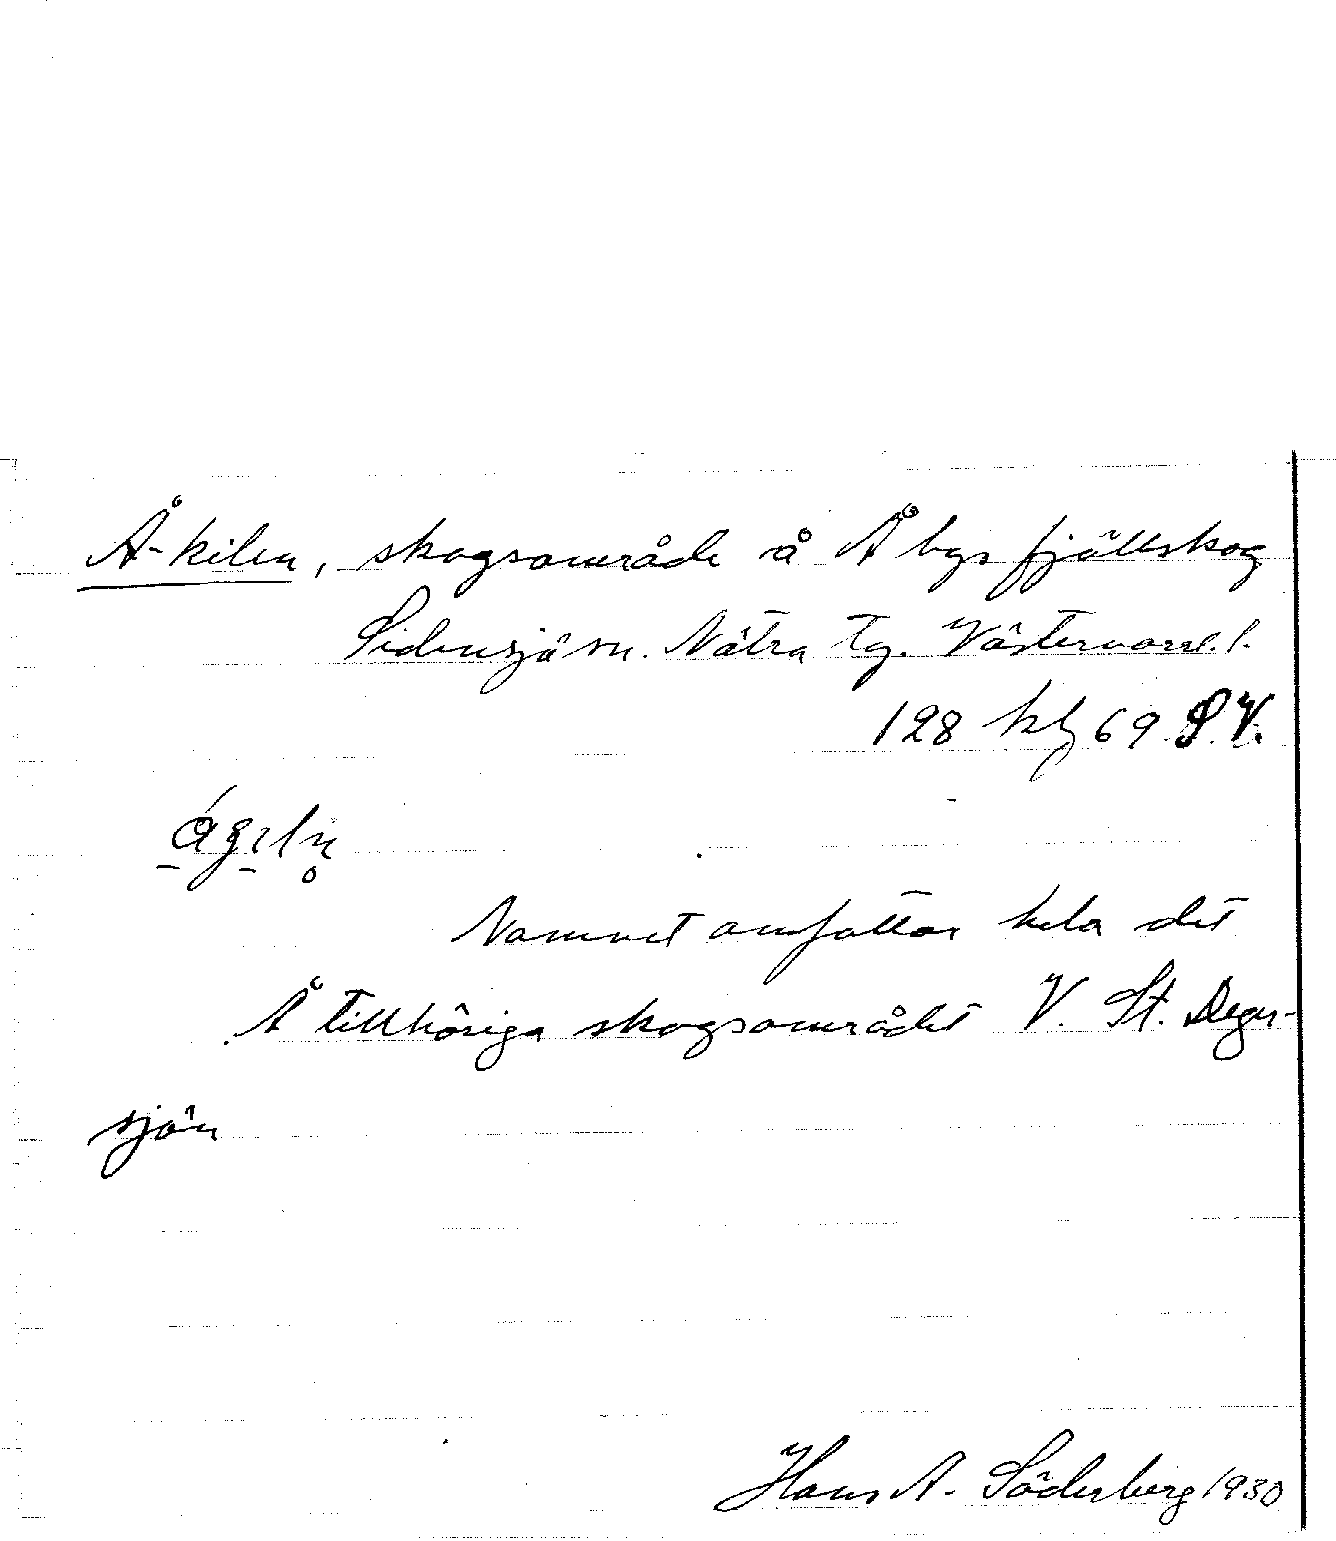 Å-kilen, skogsområde å Å bys fjällskog
Sidensjö sn. Nätra tg. Västernorrl. l.
128 kbl 69 S.V.
Namnet omfattar hela det
Å tillhöriga skogsområdet V. St. Deger-
sjön
Hans A. Söderberg 1930